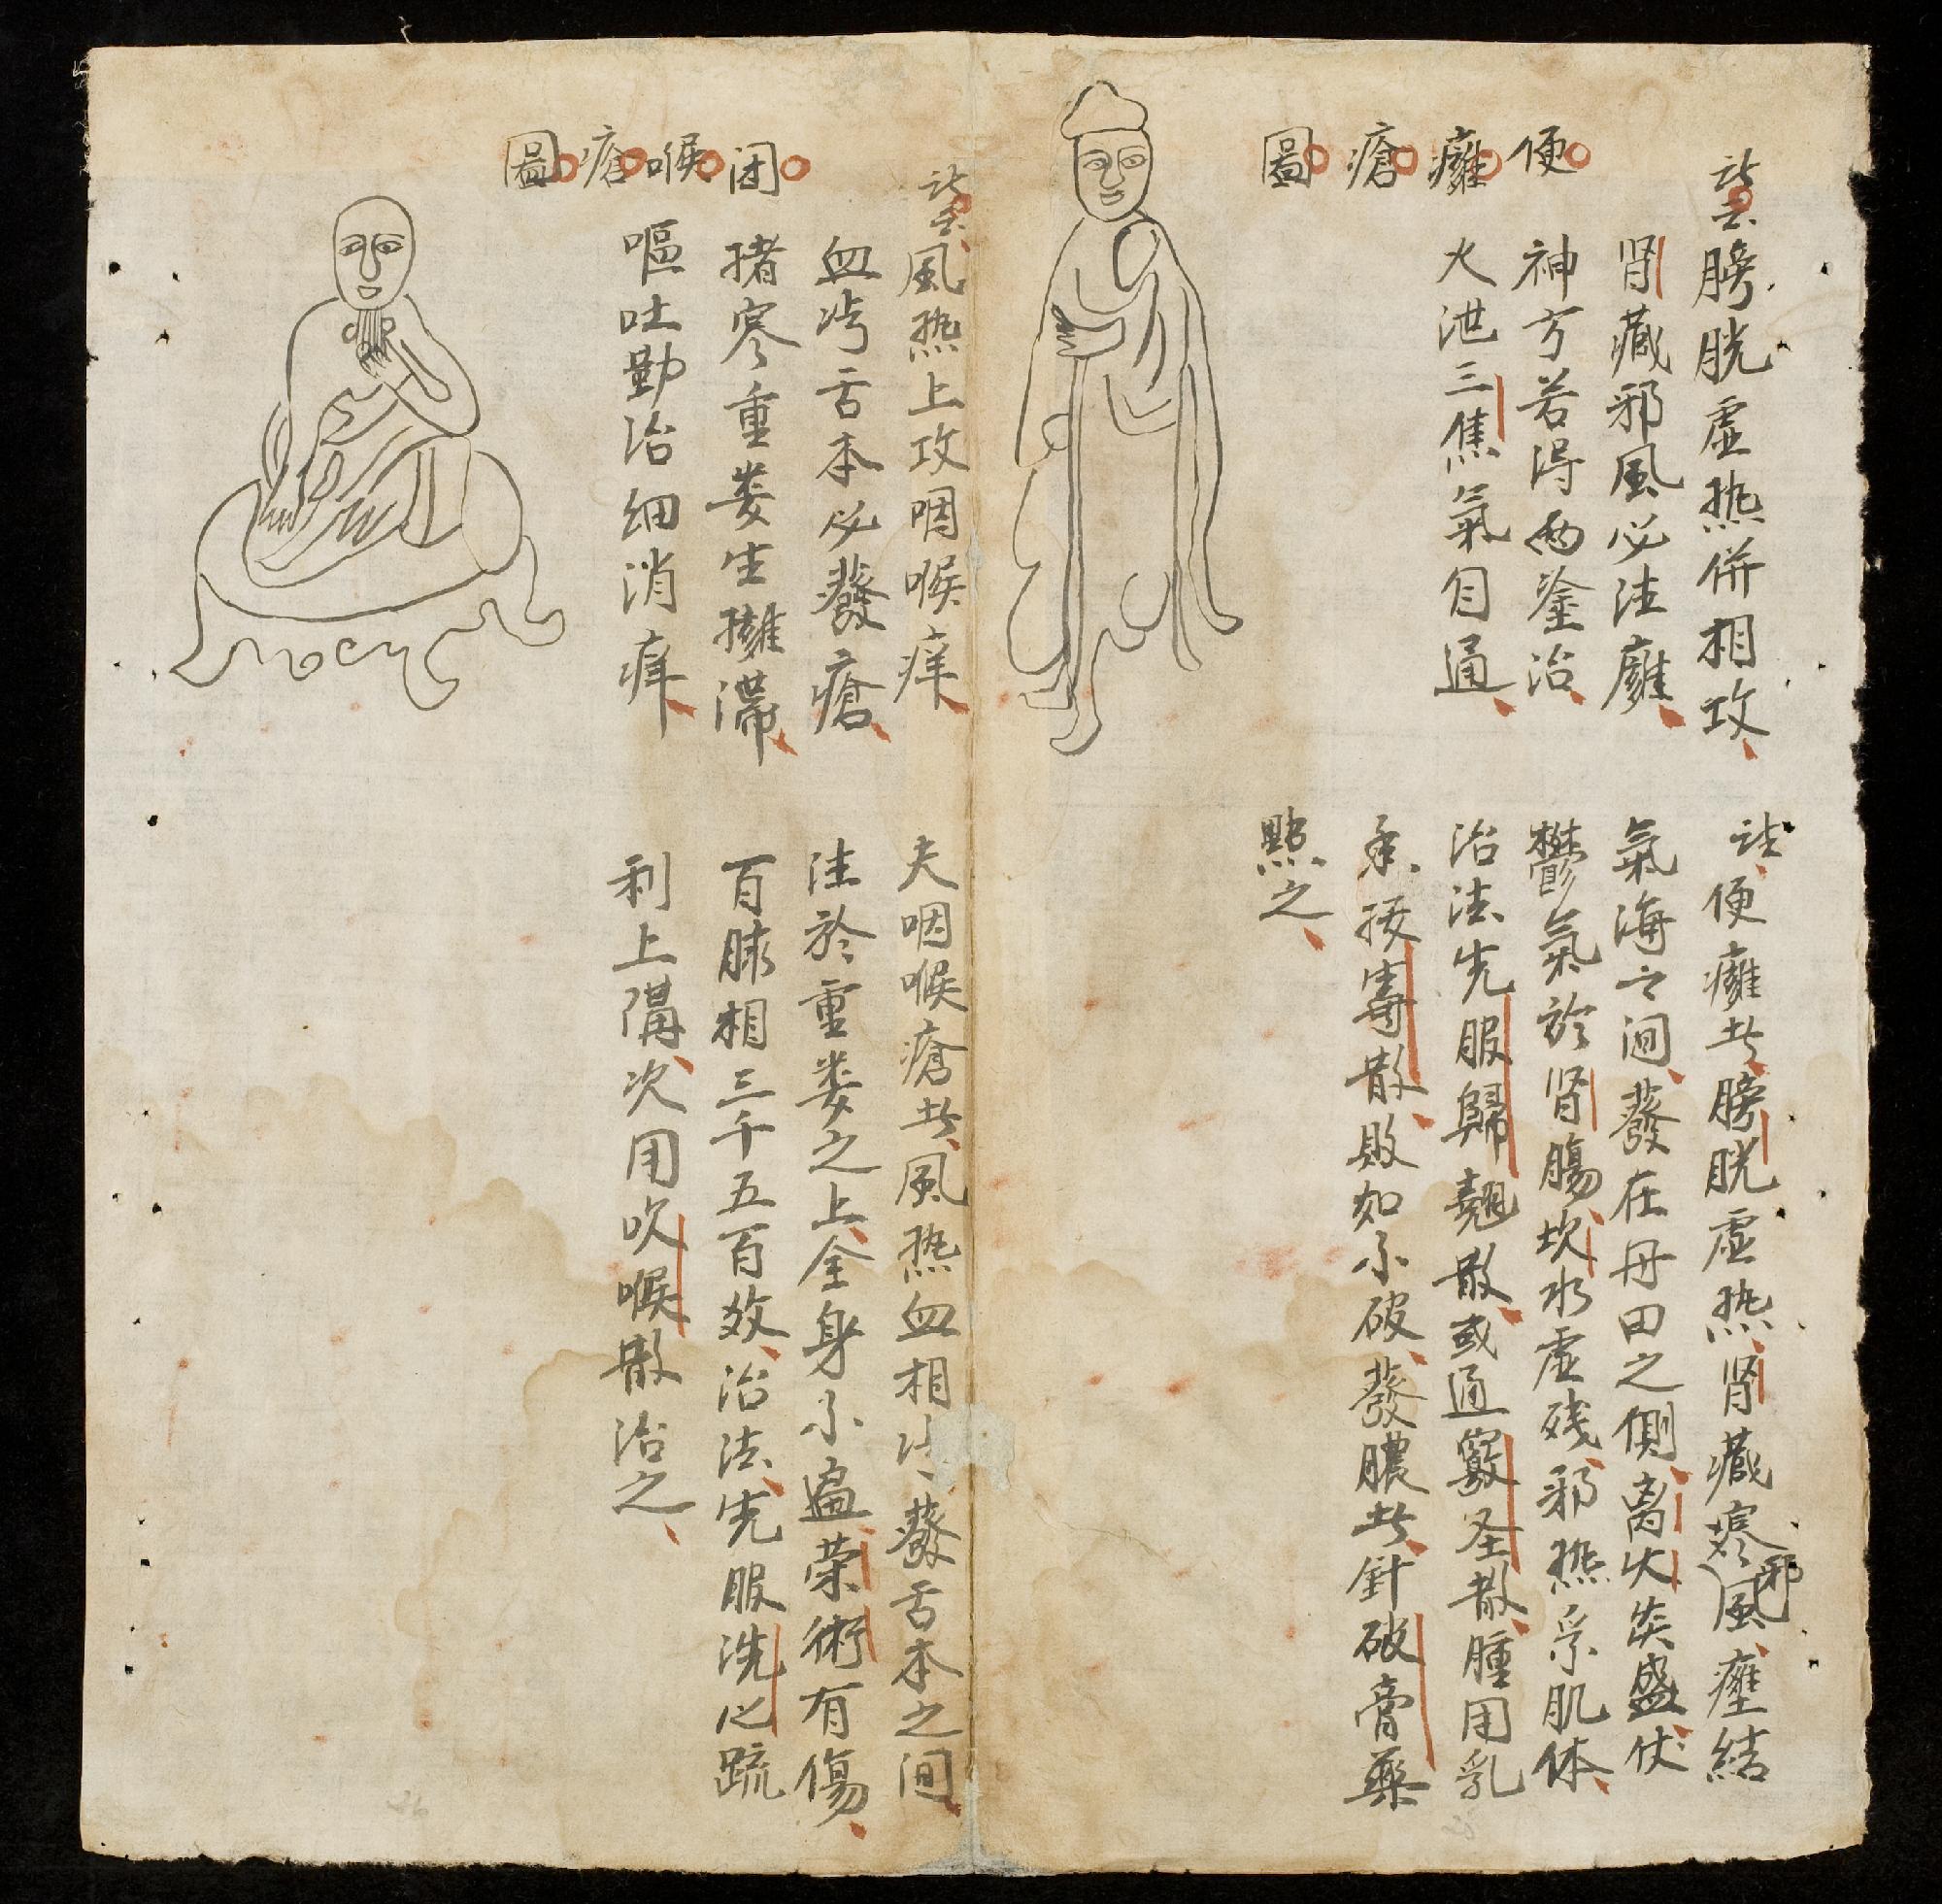 便癰瘡圖
訣云膀胱虛热併相攻
肾藏邪風必注癰
神方若淂两崟治
火泄三焦氣自通
註便癰者膀胱虛热肾藏寒邪風壅結
氣海之间發在丹田之側离火炎盛伏
鬱氣於肾腸坎水虛殘邪热系肌体
治法先服歸翘散或通竅圣散腫用乳
香接寄散敗如不破發膿者針破膏藥
點之
闭喉瘡圖
風热上攻咽喉痒
血冯舌本必發瘡
猪寒重娄生擁滯
嘔吐勤治细消痒
夫咽喉瘡者風热血相注發舌本之间
注於重娄之上全身不遍荣術有傷
百脉相三千五百效治法先服洗心䟽
利上膈次用吹喉散治之